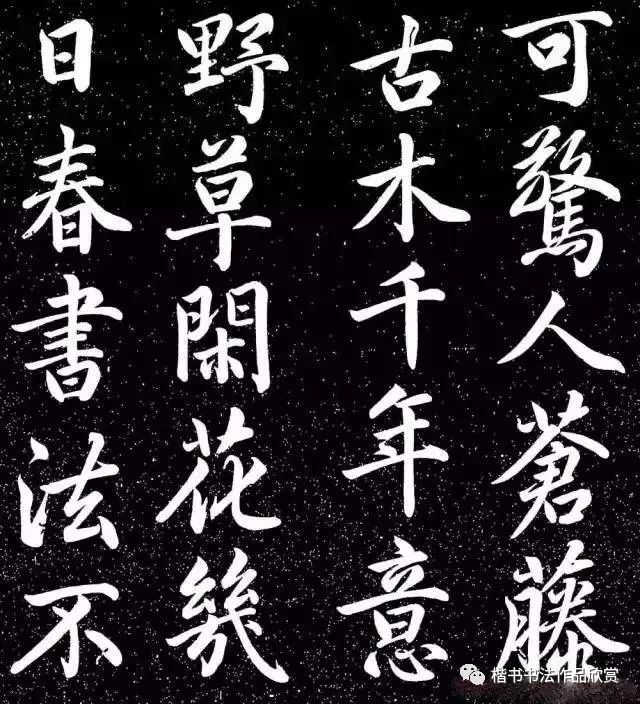 可驚人蒼藤
古木千年意
野草閑花幾
日春書法不
楷书书法作品欣赏